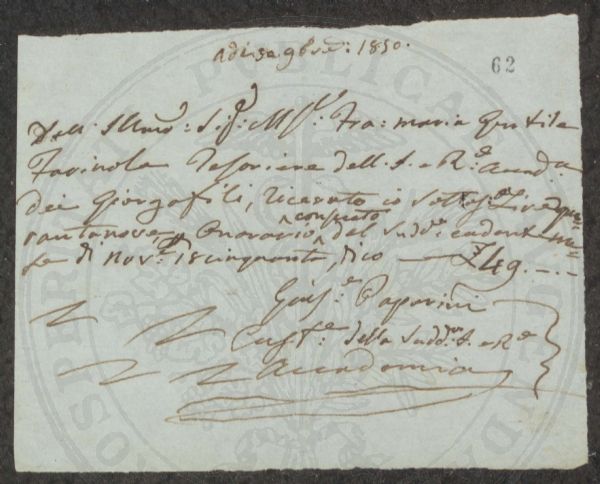 Adi 30 9bre: 1850.
62
Dall: Illmo: Sig:e M:se: Fra: maria Gentile
Farinola Tesoriere dell. I. e R:e Accad:a
dei Giorgofili, ricevuto io sottos:o Lire qua=
rantanove, p Onorario compiuto del Sudd:o cadent me=
se di Nov:e 18cinquanta, dico £49.-.-
Gius:e Paperini
Cust:e della Sudd:a I. e R:e
Accademia
PUBLICAE
PROSPERITATI